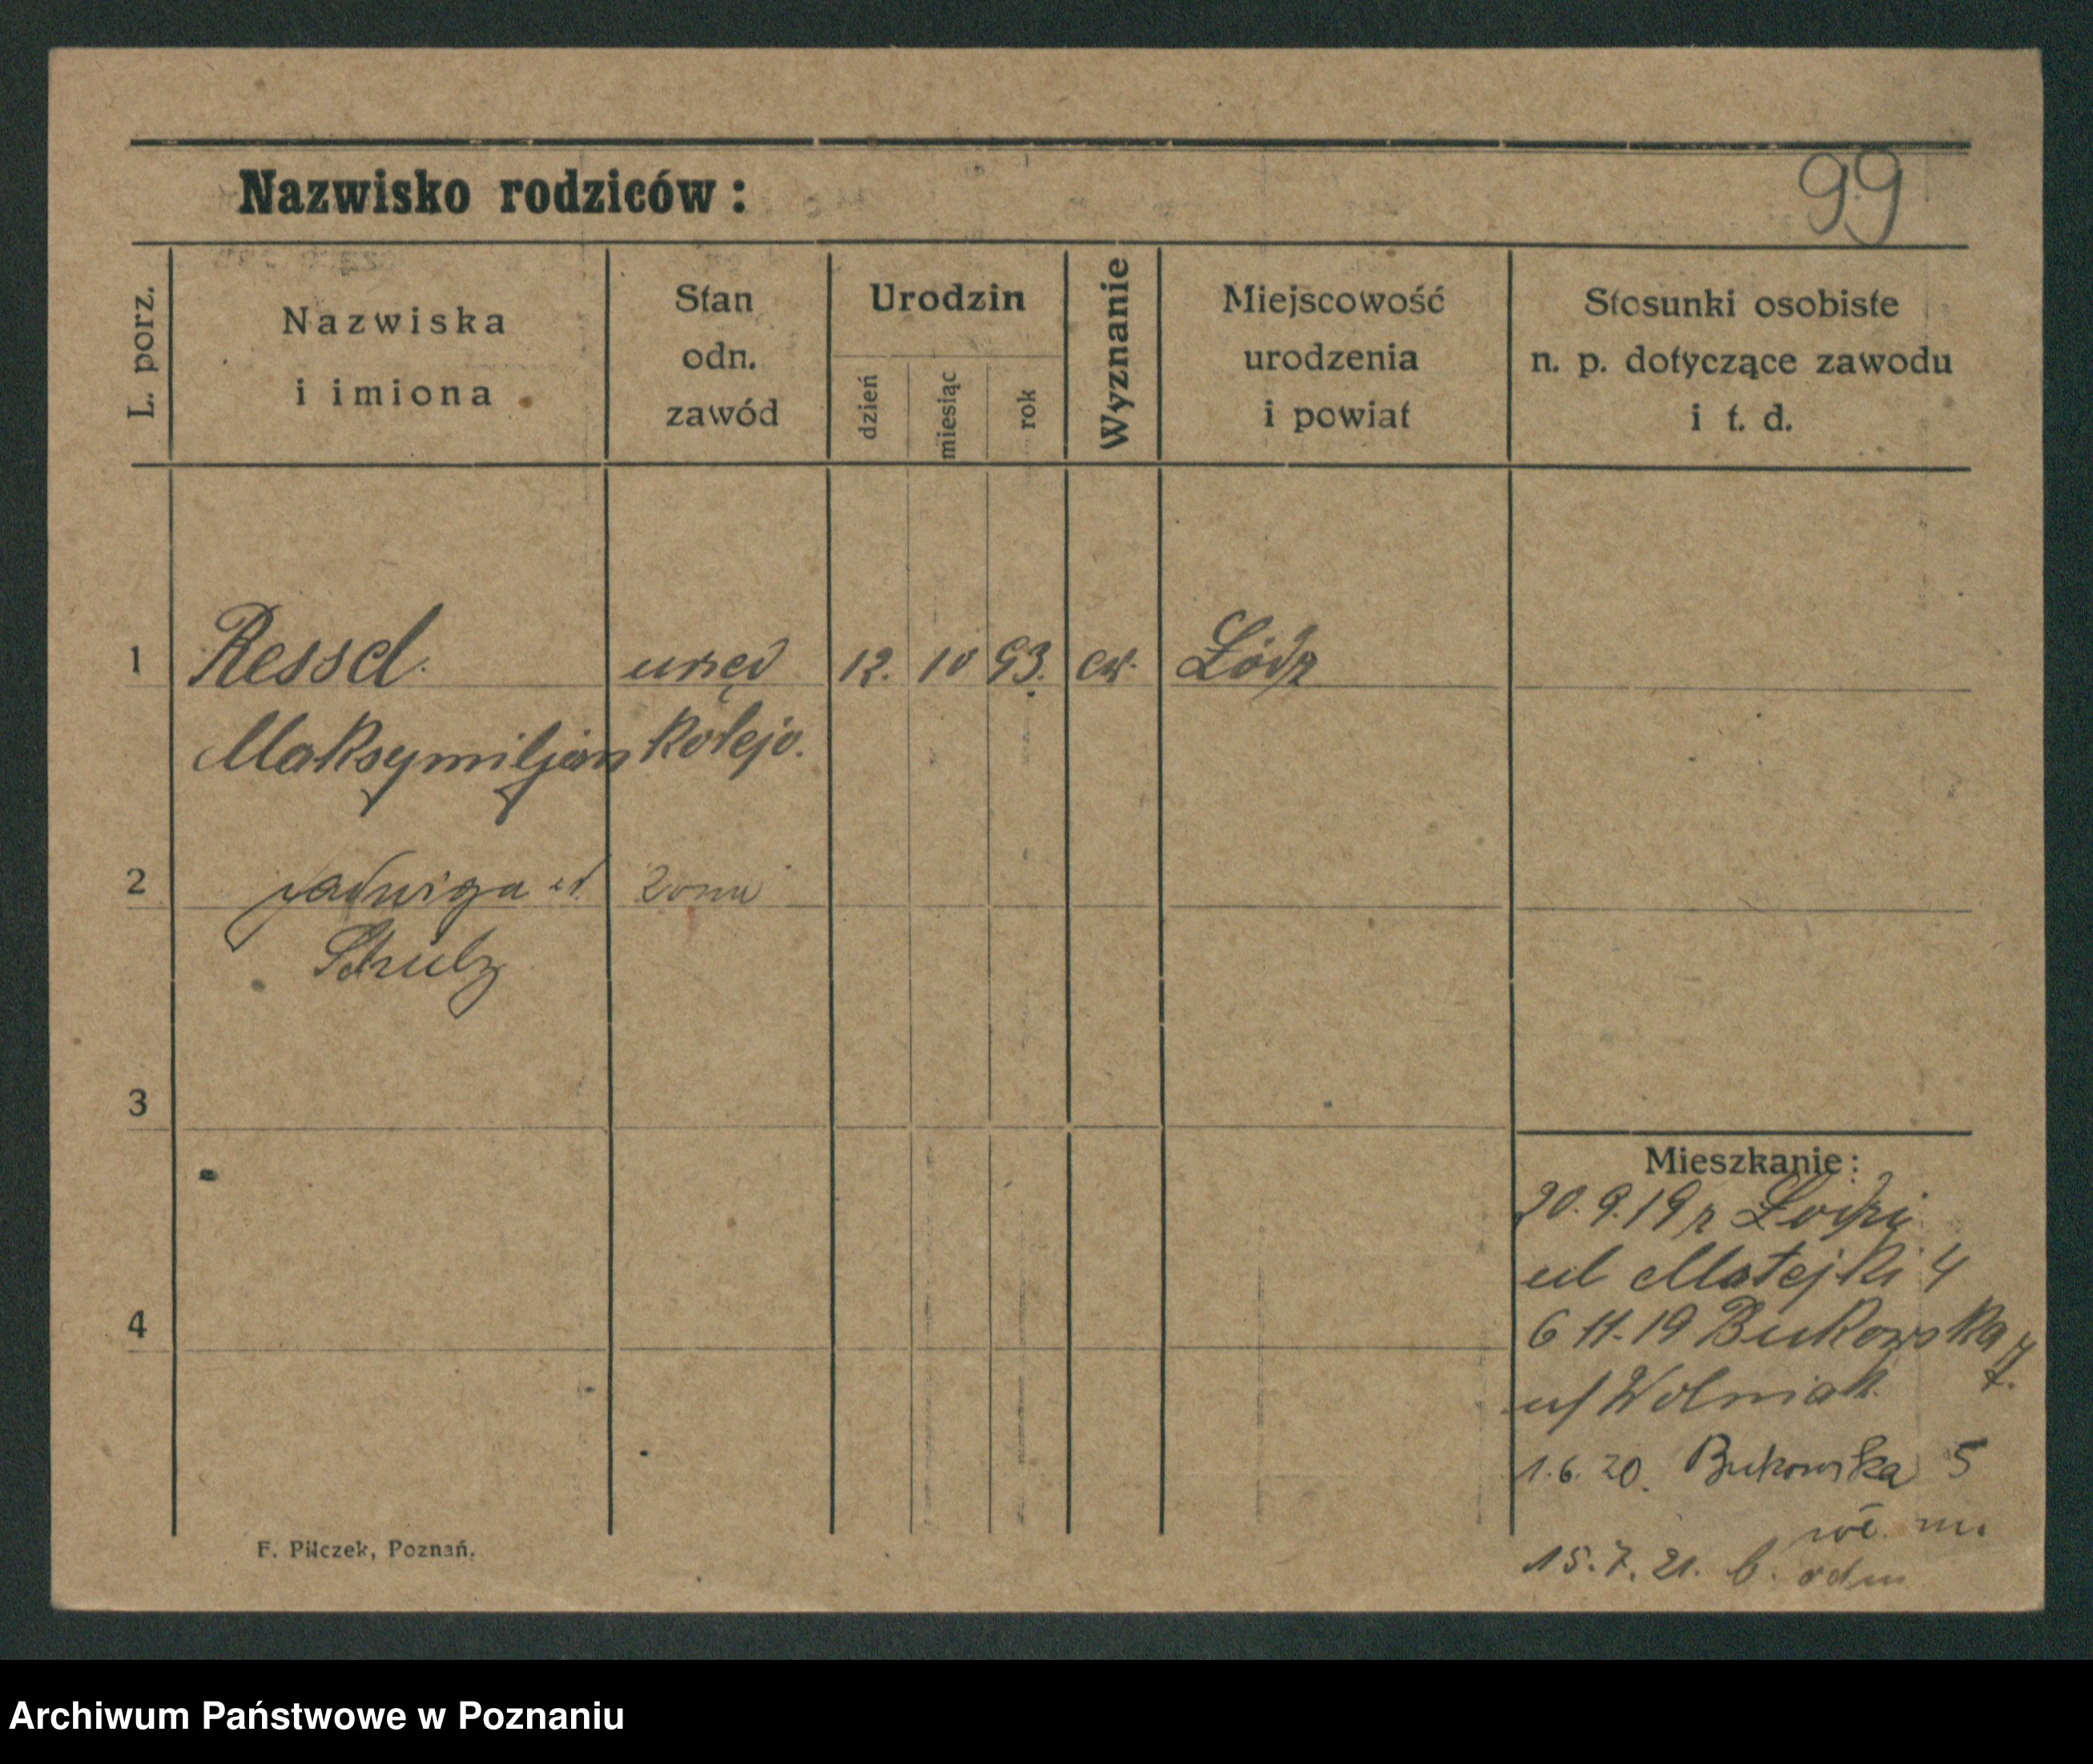 Nazwisko rodziców:
99
L. porz.
Nazwiska
i imiona
Stan
odn.
zawód
Urodzin
dzień
miesiąc
rok
Wyznanie
Miejscowość
urodzenia
i powiat
Stosunki osobiste
n. p. dotyczące zawodu
i t. d.
1 Ressel urzęd 12. 10 93. ew. Łódz
Maksymiljan kolejo.
2 Jadwiga żona
Schulz
3
Mieszkanie:
20.9.19 z Łodzi
ul Matejki 4
4
6 11.19 Bukowska 7
u/ Wolniak
1.6.20. Bukowska 5
15.7.21.
F. Pilczek, Poznań.
Archiwum Państwowe w Poznaniu